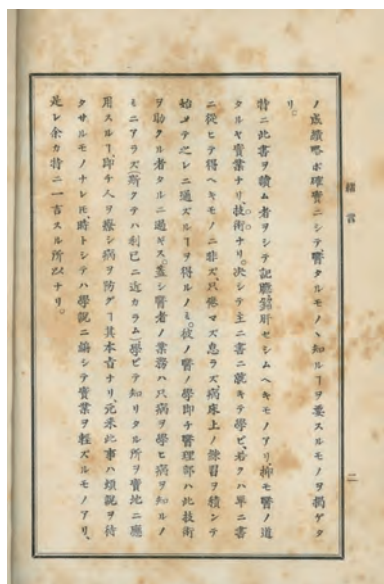 緒言
二
ノ成績略ボ確實ニシテ、醫タルモノヽ知ルヿヲ要スルモノヲ揭ゲタ
リ。
特ニ此書ヲ讀ム者ヲシテ記臆銘肝セシムヘキモノアリ、抑モ醫ノ道
タルヤ實業ナリ、技術ナリ。決シテ主ニ書ニ就キテ學ビ、若クハ單ニ書
ニ從ヒテ得ヘキモノニ非ズ、只倦マズ怠ラズ、病床上ノ鍊習ヲ積ンデ
始メテ之レニ通ズルヿヲ得ルノミ。彼ノ醫ノ學即チ醫理部ハ此技術
ヲ助クル者タルニ過ギス。蓋シ醫者ノ業務ハ只病ヲ學ヒ病ヲ知ルノ
ミニアラズ(斯クテハ利己ニ近カラム)學ビテ知リタル所ヲ實地ニ應
用スルヿ、即チ人ヲ療シ病ヲ防グヿ其本旨ナリ、元來此事ハ煩說ヲ待
タサルモノナレ𪜈、時トシテハ學說ニ偏シテ實業ヲ輕ズルモノアリ、
是レ余カ特ニ一言スル所以ナリ。